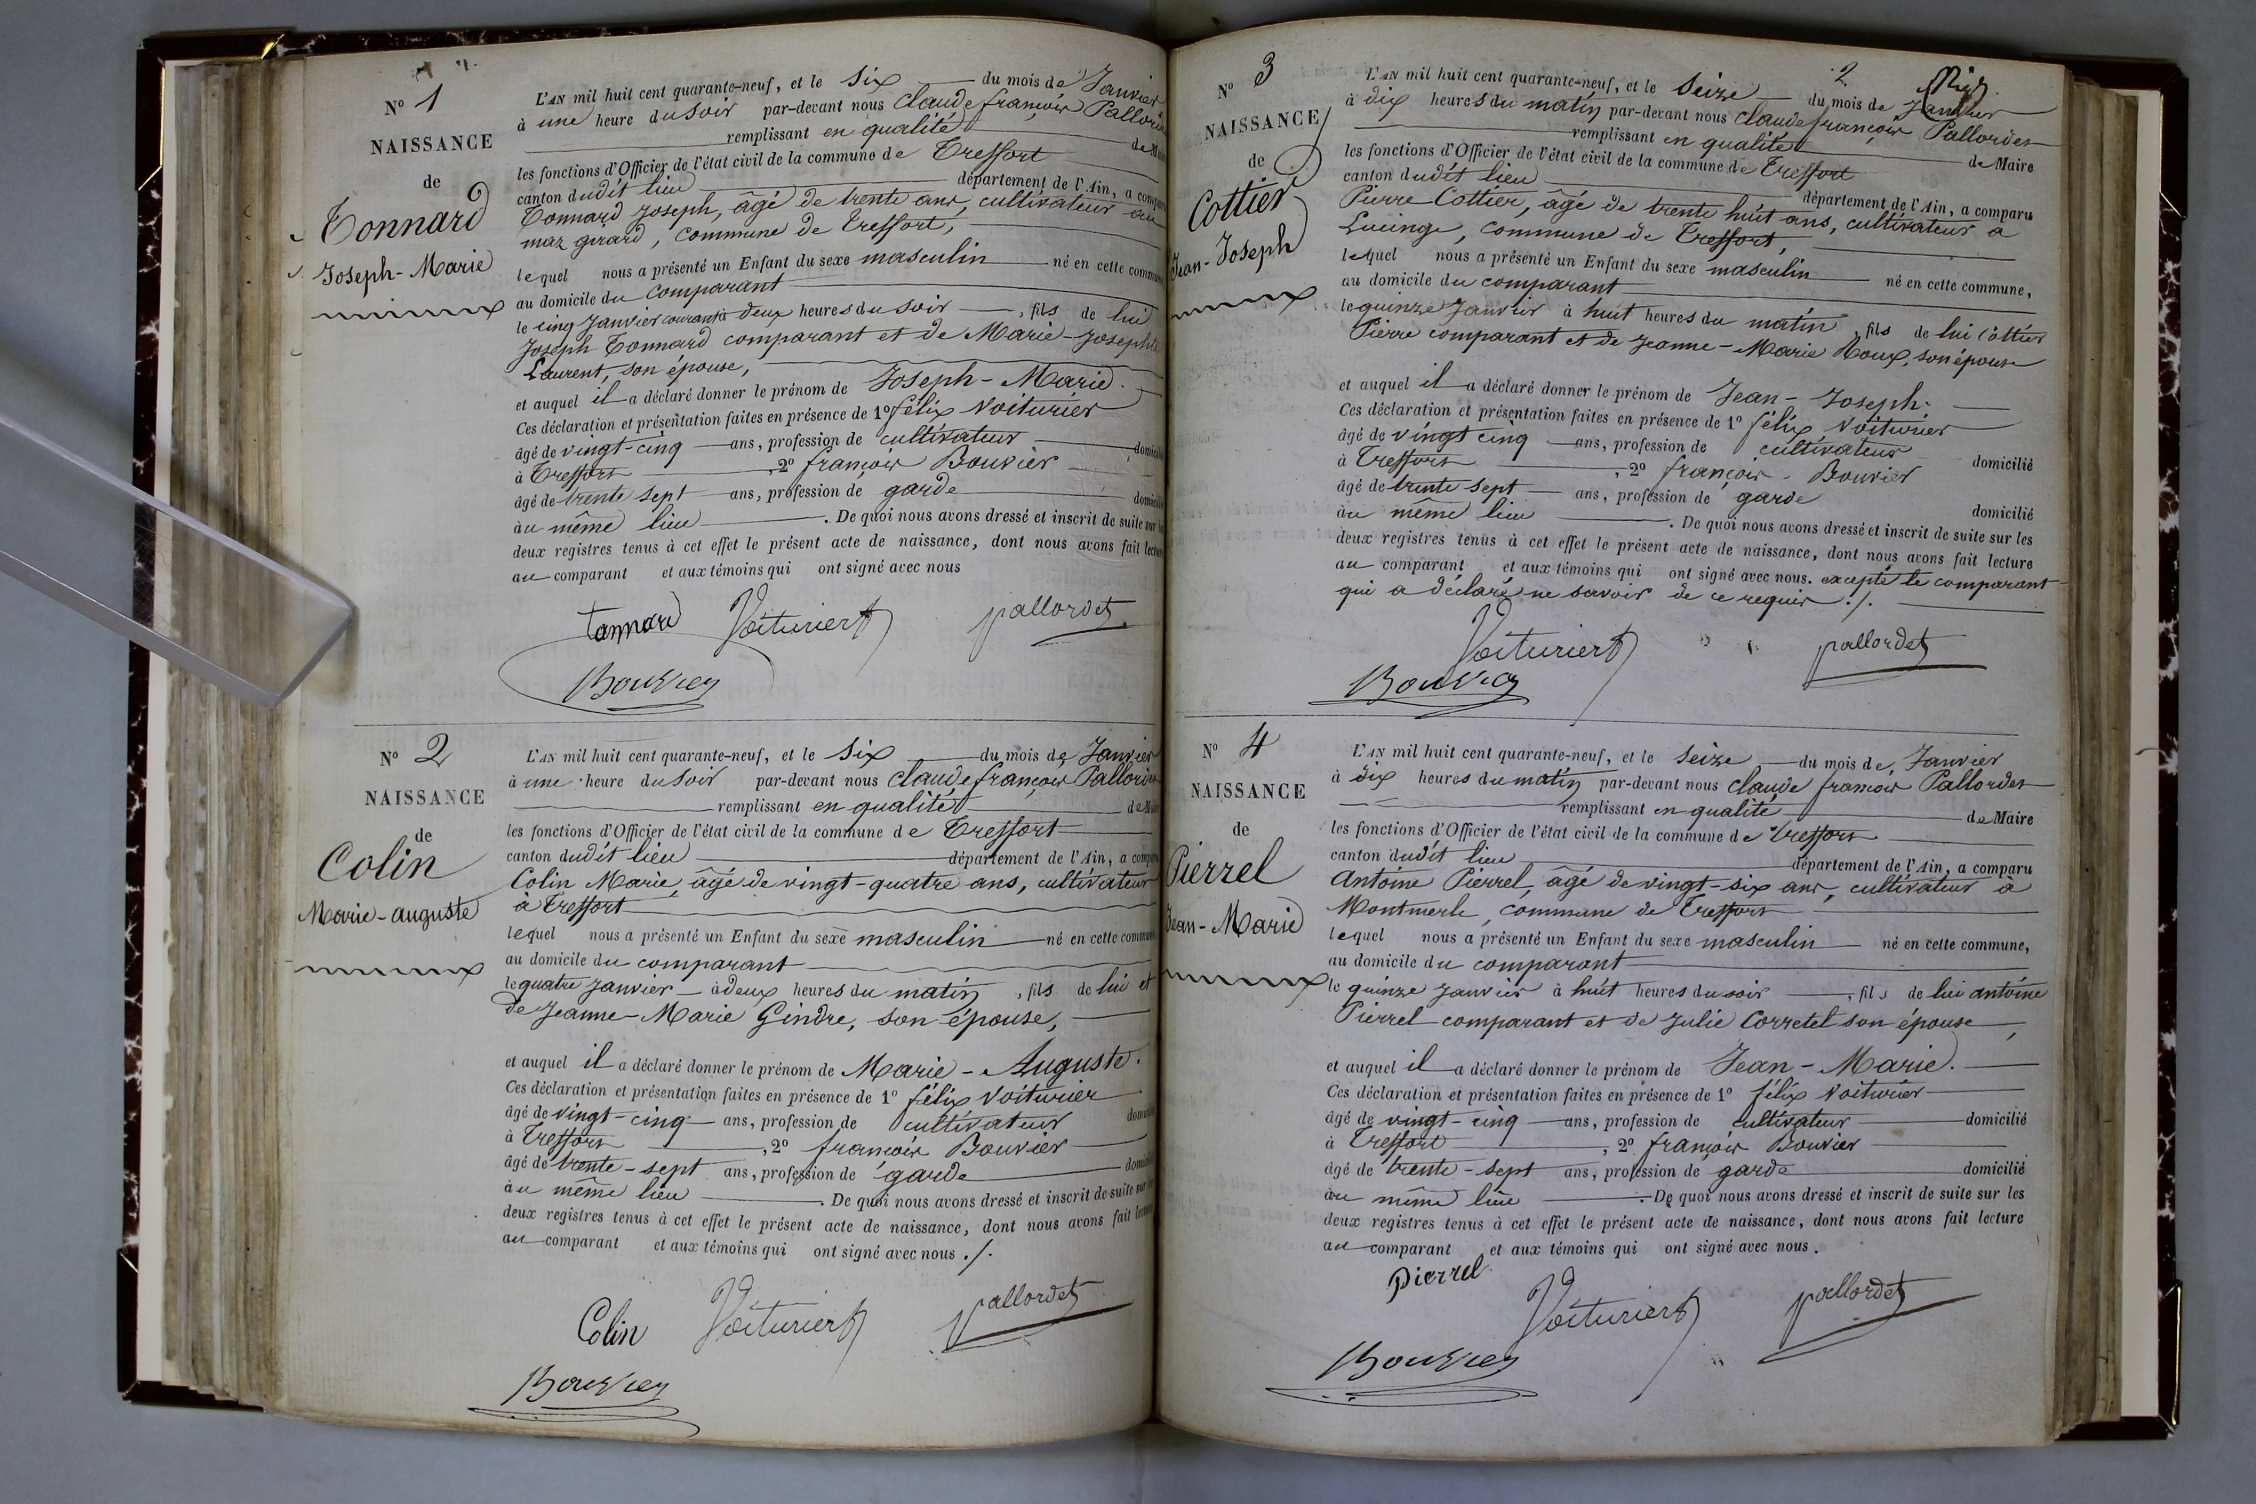 N° 1
NAISSANCE
de
Tonnard
Joseph-Marie
L'AN mil huit cent quarante-neuf, et le six du mois de Janvier
à une heure du soir par-devant nous Claude françois Pallordet
remplissant en qualité de Maire
les fonctions d'Officier de l'état civil de la commune de Treffort
canton dudit lieu département de l'Ain, a comparu
Tonnard Joseph, âgé de trente ans, cultivateur au
maz girard, commune de Treffort,
lequel nous a présenté un Enfant du sexe masculin né en cette commune
au domicile du comparant
le cinq Janvier courant à deux heures du soir, fils de lui
Joseph Tonnard comparant et de Marie-Josephte
Laurent, son épouse,
et auquel il a déclaré donner le prénom de Joseph-Marie.
Ces déclaration et présentation faites en présence de 1° félix Voiturier
âgé de vingt-cinq ans, profession de cultivateur domicilié
à Treffort, 2° françois Bouvier
âgé de trente sept ans, profession de garde domicilié
au même lieu. De quoi nous avons dressé et inscrit de suite sur les
deux registres tenus à cet effet le présent acte de naissance, dont nous avons fait lecture
au comparant et aux témoins qui ont signé avec nous
Tonnard Voiturier pallordet
Bouvier
N° 2
NAISSANCE
de
Colin
Marie-auguste
L'AN mil huit cent quarante-neuf, et le six du mois de Janvier
à une heure du soir par-devant nous Claude françois Pallordet
remplissant en qualité de Maire
les fonctions d'Officier de l'état civil de la commune de Treffort
canton dudit lieu département de l'Ain, a comparu
Colin Marie, âgé de vingt-quatre ans, cultivateur
à Treffort
lequel nous a présenté un Enfant du sexe masculin né en cette commune
au domicile du comparant
le quatre janvier à deux heures du matin, fils de lui et
de Jeanne-Marie Gindre, son épouse,
et auquel il a déclaré donner le prénom de Marie-Auguste.
Ces déclaration et présentation faites en présence de 1° félix Voiturier
âgé de vingt-cinq ans, profession de cultivateur domicilié
à Treffort, 2° françois Bouvier
âgé de trente-sept ans, profession de garde domicilié
au même lieu. De quoi nous avons dressé et inscrit de suite sur les
deux registres tenus à cet effet le présent acte de naissance, dont nous avons fait lecture
au comparant et aux témoins qui ont signé avec nous ./.
Colin Voiturier pallordet
Bouvier
2
N° 3
NAISSANCE
de
Cottier
Jean-Joseph
L'AN mil huit cent quarante-neuf, et le seize du mois de Janvier
à dix heures du matin par-devant nous claude françois Pallordet
remplissant en qualité de Maire
les fonctions d'Officier de l'état civil de la commune de Treffort
canton dudit lieu département de l'Ain, a comparu
Pierre Cottier, âgé de trente huit ans, cultivateur à
Lucinge, commune de Treffort,
lequel nous a présenté un Enfant du sexe masculin né en cette commune,
au domicile du comparant
le quinze Janvier à huit heures du matin, fils de lui Cottier
Pierre comparant et de Jeanne-Marie Roux, son épouse
et auquel il a déclaré donner le prénom de Jean-Joseph.
Ces déclaration et présentation faites en présence de 1° félix Voiturier
âgé de vingt cinq ans, profession de cultivateur domicilié
à Treffort, 2° françois Bouvier
âgé de trente sept ans, profession de garde domicilié
au même lieu. De quoi nous avons dressé et inscrit de suite sur les
deux registres tenus à cet effet le présent acte de naissance, dont nous avons fait lecture
au comparant et aux témoins qui ont signé avec nous. excepté le comparant
qui a déclaré ne savoir de ce requis ./.
Voiturier pallordet
Bouvier
N° 4
NAISSANCE
de
Pierrel
Jean-Marie
L'AN mil huit cent quarante-neuf, et le seize du mois de Janvier
à dix heures du matin par-devant nous claude françois Pallordet
remplissant en qualité de Maire
les fonctions d'Officier de l'état civil de la commune de Treffort
canton dudit lieu département de l'Ain, a comparu
Antoine Pierrel, âgé de vingt-six ans, cultivateur à
Montmerle, commune de Treffort
lequel nous a présenté un Enfant du sexe masculin né en cette commune,
au domicile du comparant
le quinze Janvier à huit heures du soir, fils de lui antoine
Pierrel comparant et de Julie Corretel son épouse,
et auquel il a déclaré donner le prénom de Jean-Marie.
Ces déclaration et présentation faites en présence de 1° félix Voiturier
âgé de vingt-cinq ans, profession de cultivateur domicilié
à Treffort, 2° françois Bouvier
âgé de trente-sept ans, profession de garde domicilié
au même lieu. De quoi nous avons dressé et inscrit de suite sur les
deux registres tenus à cet effet le présent acte de naissance, dont nous avons fait lecture
au comparant et aux témoins qui ont signé avec nous.
Pierrel Voiturier pallordet
Bouvier